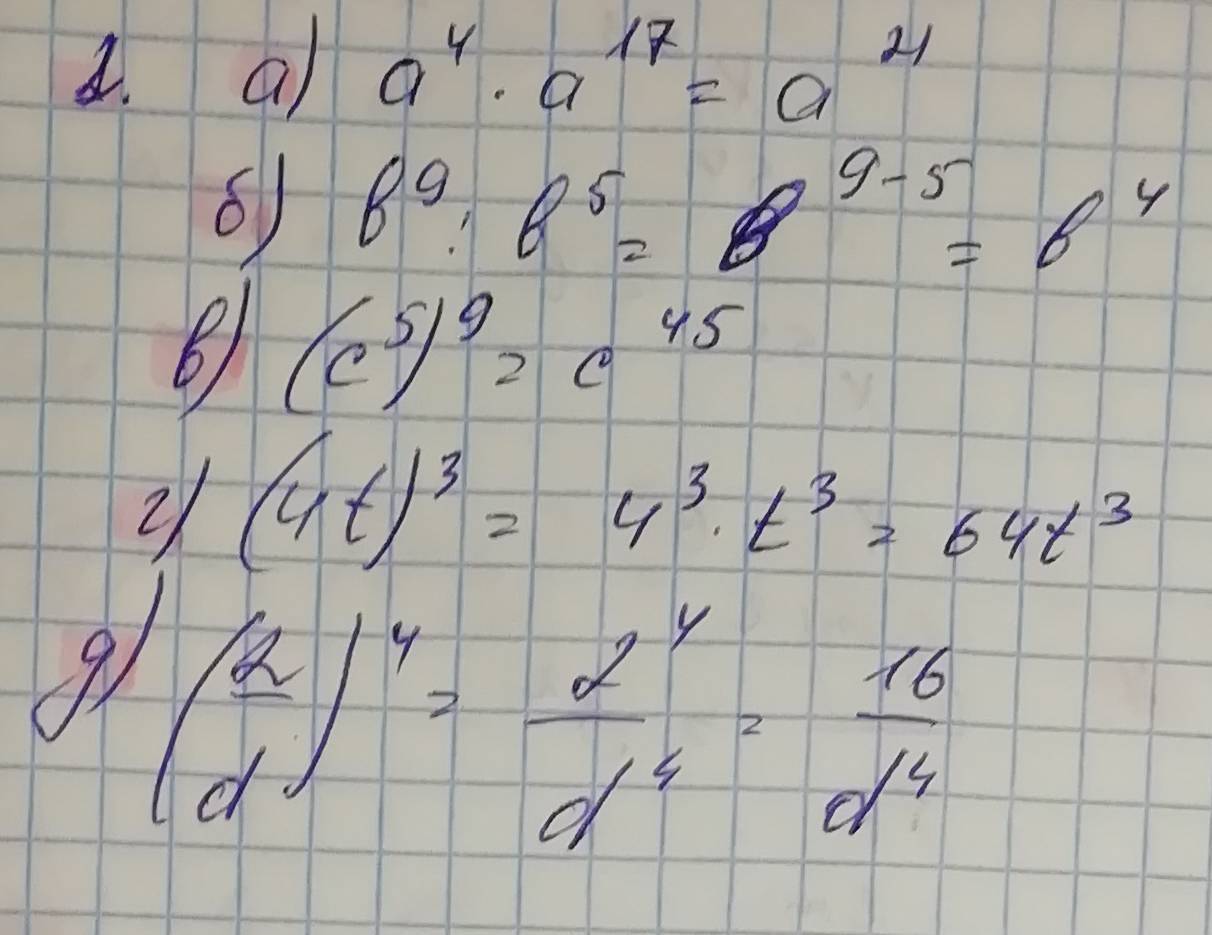 2. а) a⁴ · a¹⁷ = a²¹
б) b⁹ : b⁵ = b⁹⁻⁵ = b⁴
в) (c⁵)⁹ = c⁴⁵
г) (4t)³ = 4³ · t³ = 64t³
д) (2/d)⁴ = 2⁴/d⁴ = 16/d⁴